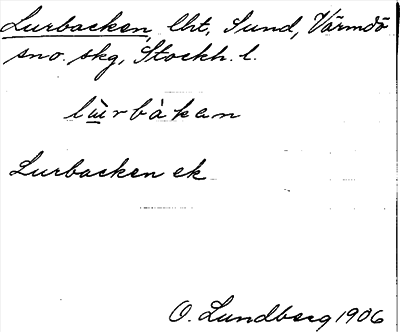 Lurbacken, lht, Sund, Värmdö
sno. skg, Stockh. l.
lùrbàkan
Lurbacken ek
O. Lundberg 1906